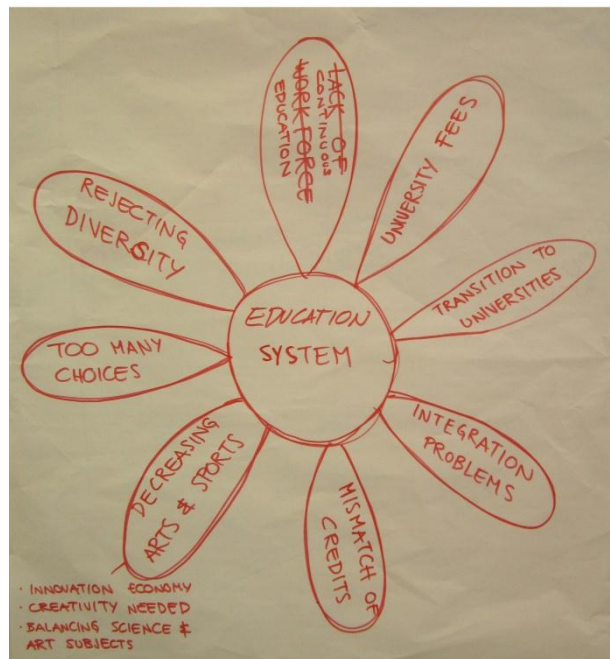 EDUCATION
SYSTEM
LACK OF
CONTINUOUS
WORK FORCE
EDUCATION
UNIVERSITY FEES
TRANSITION TO
UNIVERSITIES
INTEGRATION
PROBLEMS
MISMATCH OF
CREDITS
DECREASING
ARTS & SPORTS
TOO MANY
CHOICES
REJECTING
DIVERSITY
· INNOVATION ECONOMY
· CREATIVITY NEEDED
· BALANCING SCIENCE &
ART SUBJECTS